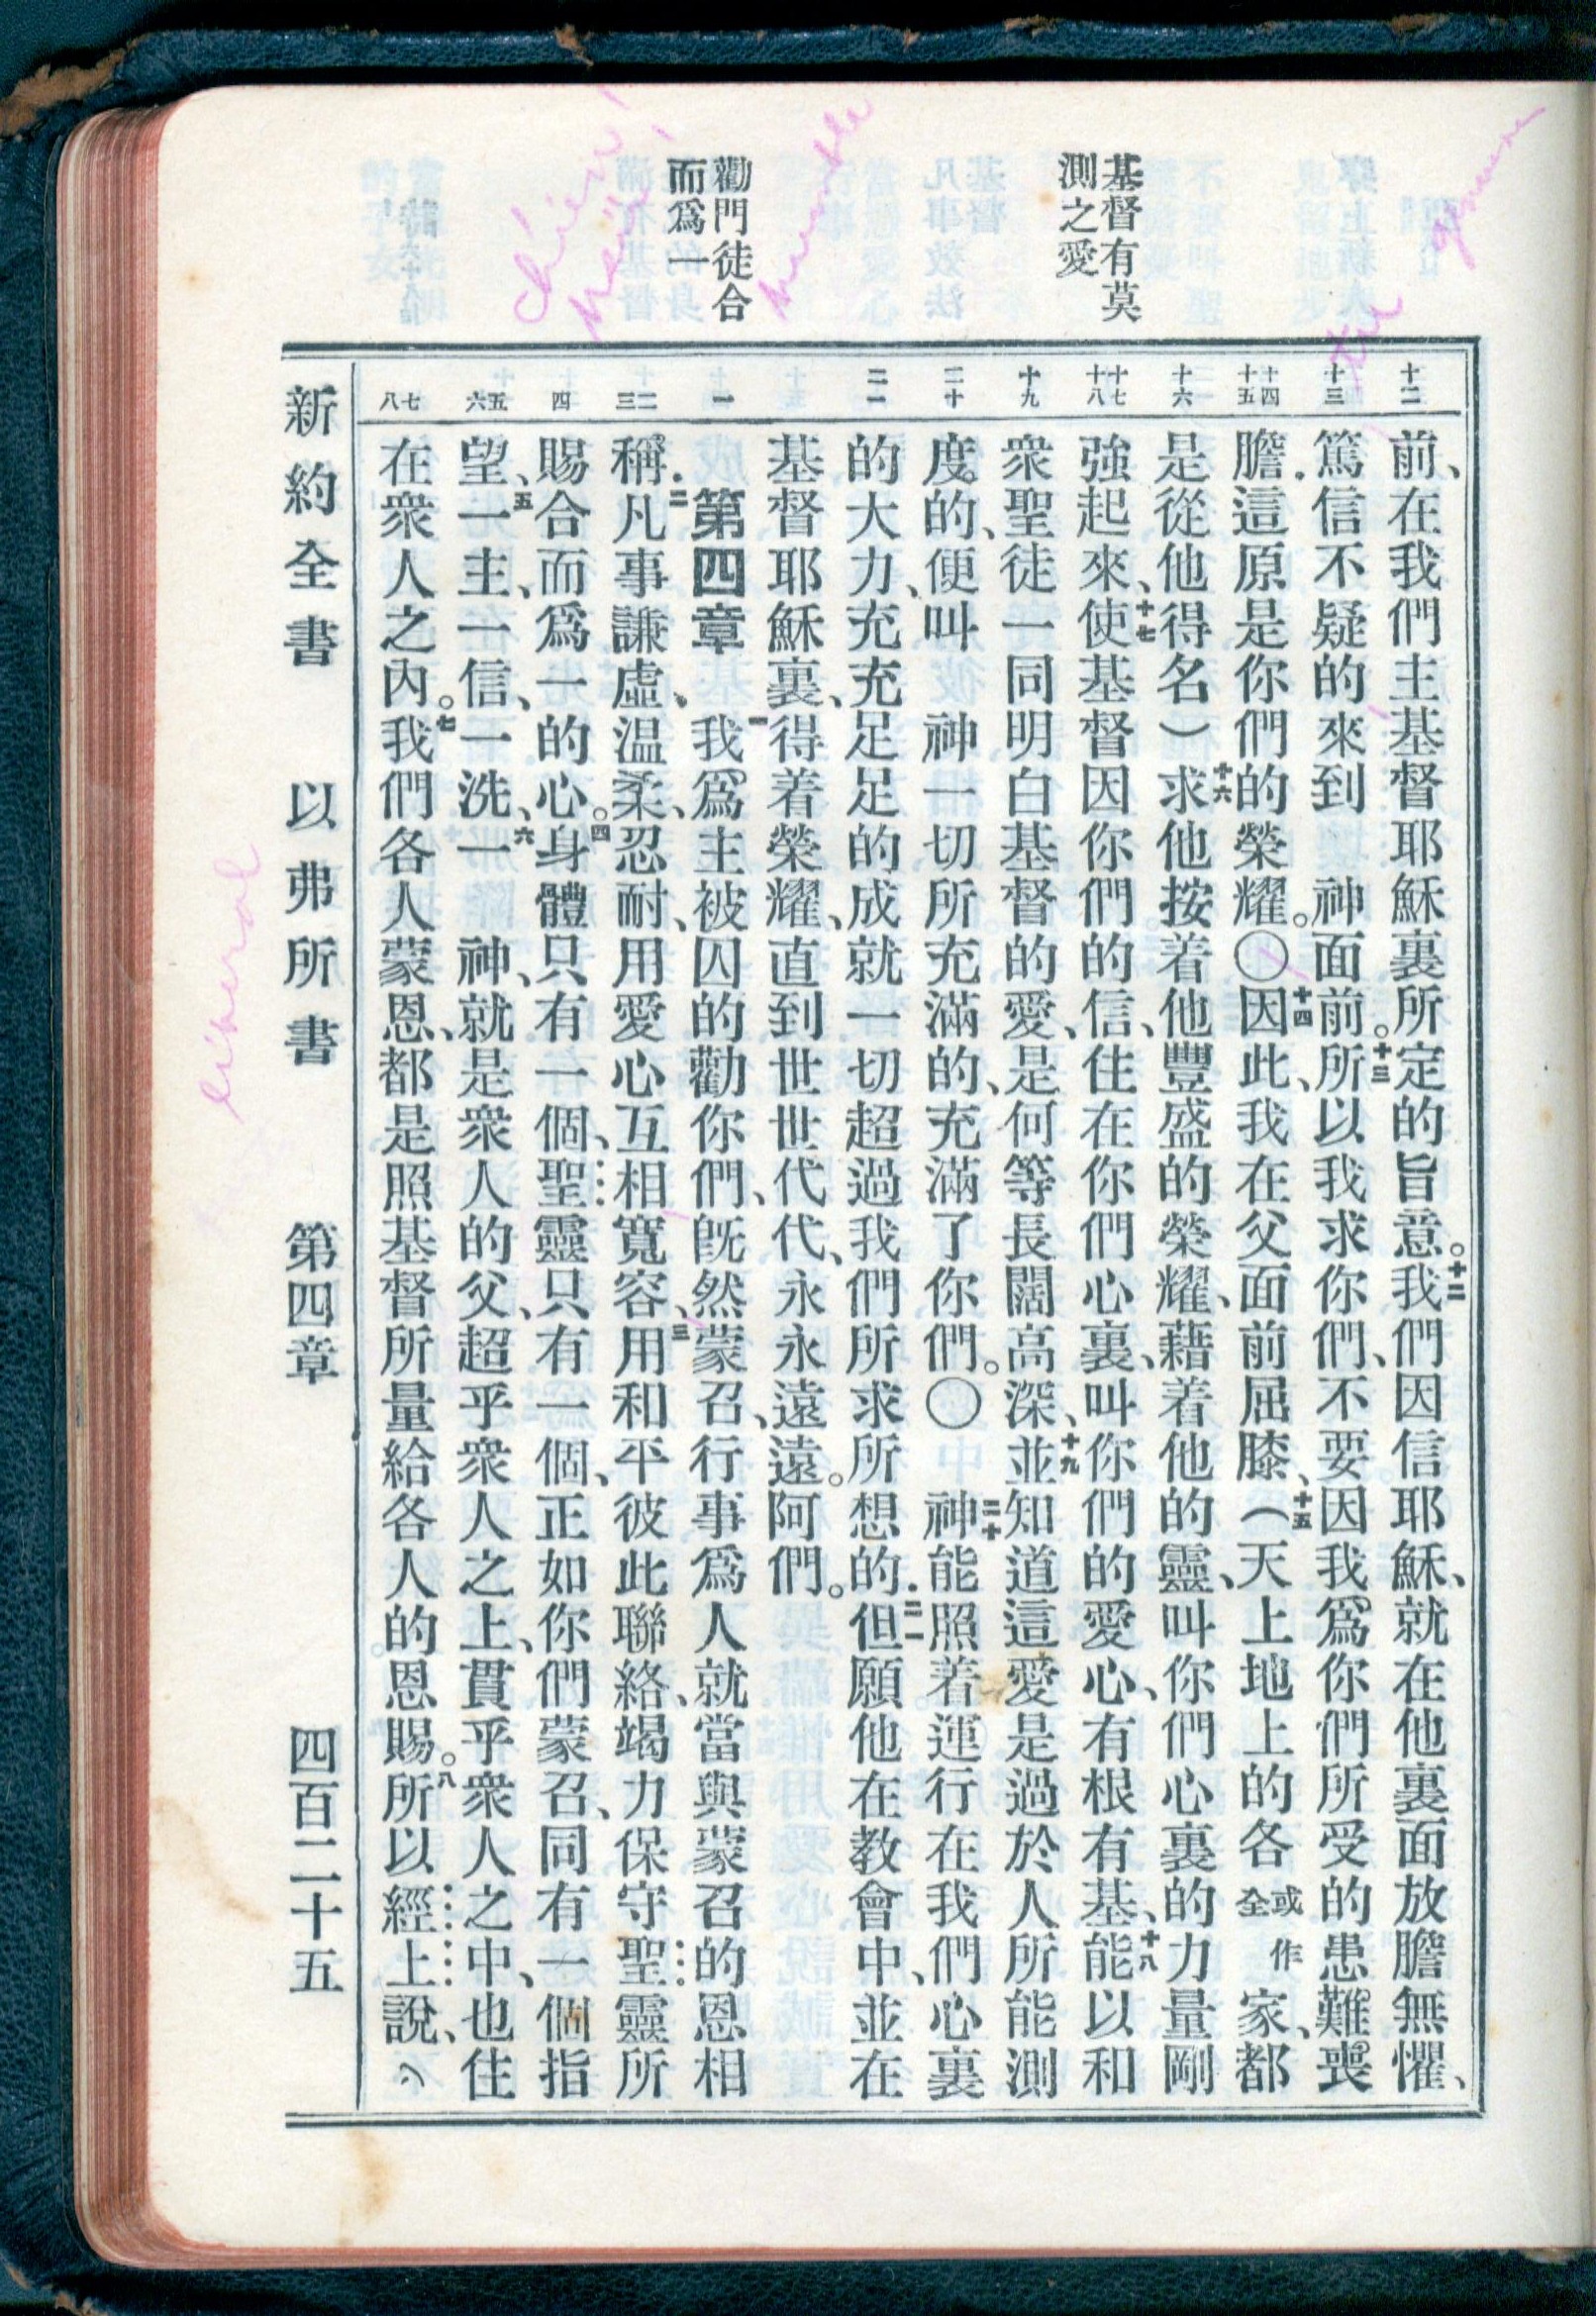 基督有莫
測之愛
勸門徒合
而爲一
十二
十三
十四
十五
十六
十七
十八
十九
二十
二一
一
二
三
四
五
六
七
八
前、在我們主基督耶穌裏所定的旨意。十二我們因信耶穌、就在他裏面放膽無懼、
篤信不疑的來到 神面前。十三所以我求你們、不要因我爲你們所受的患難喪
膽.這原是你們的榮耀。〇十四因此、我在父面前屈膝、十五(天上地上的各或作全家、都
是從他得名)十六求他按着他豐盛的榮耀、藉着他的靈、叫你們心裏的力量剛
強起來、十七使基督因你們的信、住在你們心裏、叫你們的愛心、有根有基、十八能以和
衆聖徒一同明白基督的愛、是何等長闊高深、十九並知道這愛是過於人所能測
度的、便叫 神一切所充滿的、充滿了你們。〇二十 神能照着運行在我們心裏
的大力、充充足足的成就一切超過我們所求所想的.二一但願他在教會中、並在
基督耶穌裏、得着榮耀、直到世世代代、永永遠遠。阿們。
第四章 一我爲主被囚的勸你們、旣然蒙召、行事爲人就當與蒙召的恩相
稱.二凡事謙虛、温柔、忍耐、用愛心互相寬容、三用和平彼此聯絡、竭力保守聖靈所
賜合而爲一的心。四身體只有一個、聖靈只有一個、正如你們蒙召、同有一個指
望、五一主、一信、一洗、六一 神、就是衆人的父、超乎衆人之上、貫乎衆人之中、也住
在衆人之內。七我們各人蒙恩、都是照基督所量給各人的恩賜。八所以經上說、
新約全書 以弗所書 第四章 四百二十五
liberal